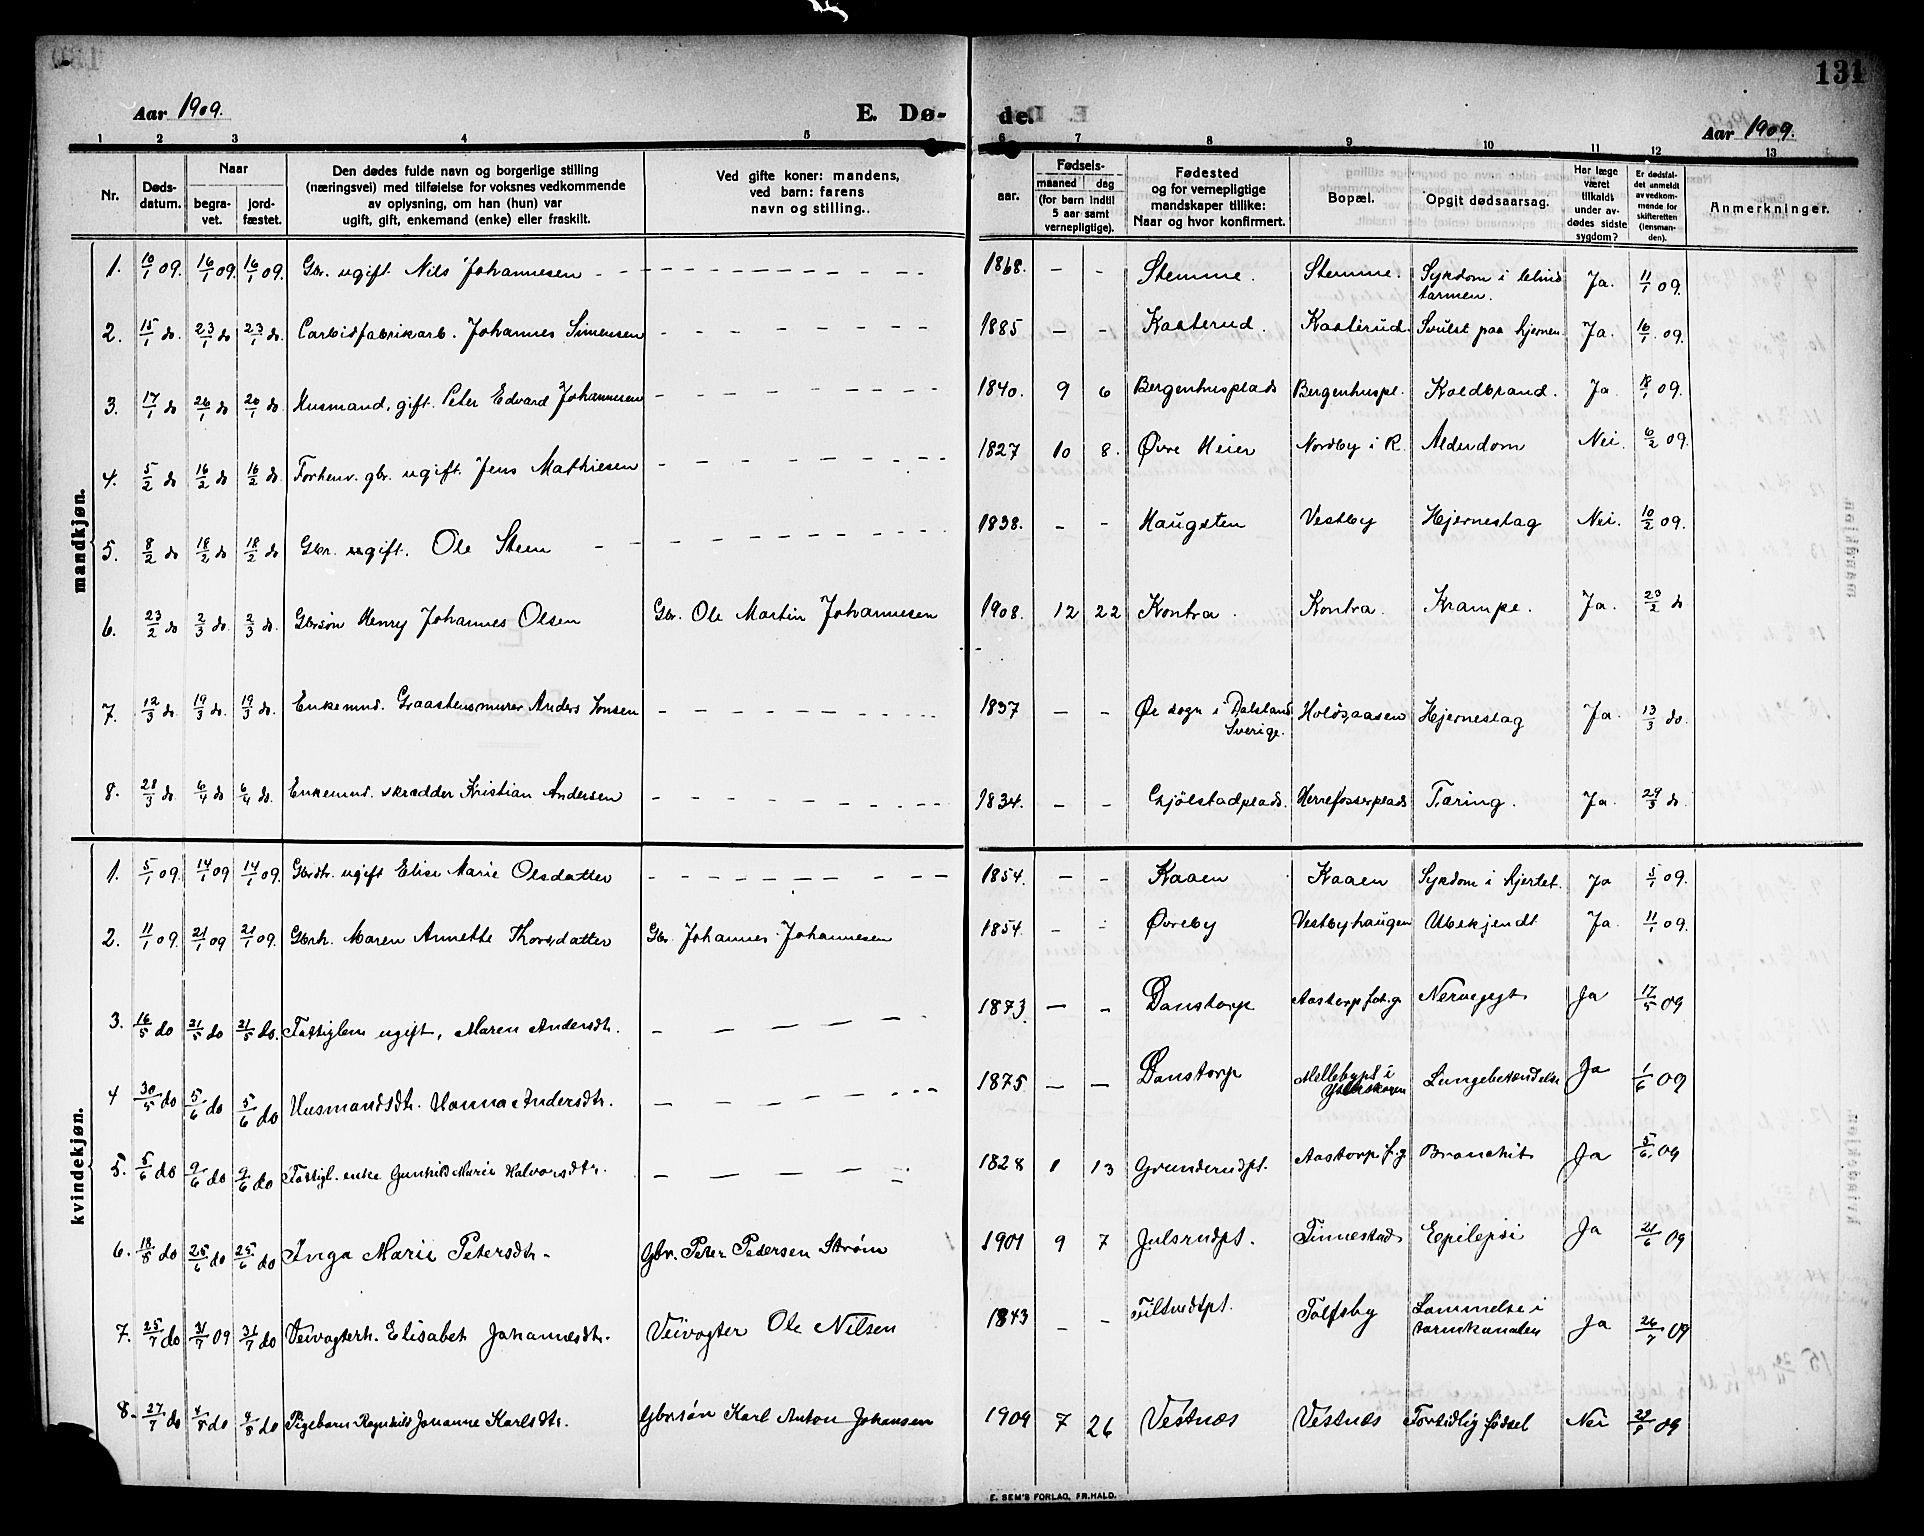 131
Aar 1909.
E. Dø-
de.
Aar 1909.
1 2 3 4 5 6 7 8 9 10 11 12 13
Nr. | Døds-datum. | Naar begra-vet. | jord-fæstet. | Den dødes fulde navn og borgerlige stilling (næringsvei) med tilføielse for voksnes vedkommende av oplysning, om han (hun) var ugift, gift, enkemand (enke) eller fraskilt. | Ved gifte koner: mandens, ved barn: farens navn og stilling.. | Fødsels- aar. | maaned | dag (for barn indtil 5 aar samt vernepligtige). | Fødested og for vernepligtige mandskaper tillike: Naar og hvor konfirmert. | Bopæl. | Opgit dødsaarsag. | Har læge været tilkaldt under av-dødes sidste sygdom? | Er dødsfal-det anmeldt av vedkom-mende for skifteretten (lensman-den). | Anmerkninger.
mandkjøn.
1. 10/1 09. 16/1 09. 16/1 09. Gbr. ugift Nils Johannesen - - - 1868. - - Stemme. Stemme. Sykdom i blind tarmen. Ja. 11/1 09.
2. 15/1 do. 23/1 do 23/1 do. Carbidfabrikarb. Johannes Simensen - - - 1885 - - Kasterud. Kasterud. Svulst paa hjernen. Ja. 16/1 09.
3. 17/1 do 26/1 do 26/1 do. Husmand, gift. Peter Edvard Johannesen - - - 1840. 9 6 Bergenhusplads Bergenhuspl. Koldbrand. Ja. 18/1 09.
4. 5/2 do 16/2 do 16/2 do. Forhenv. gbr. ugift. Jens Mathiesen - - - 1827 10 8. Øvre Heier Nordby i R. Alderdom Nei. 6/2 09.
5. 8/2 do 18/2 do 18/2 do. Gbr. ugift. Ole Steen - - - 1838. - - Haugsten Vestby Hjerneslag Nei. 10/2 09.
6. 23/2 do 2/3 do. 2/3 do. Gbrsøn Henry Johannes Olsen Gbr. Ole Martin Johannesen 1908. 12 22 Kontra. Kontra. Krampe. Ja. 23/2 do
7. 12/3 do. 19/3 do. 19/3 do. Enkemnd. Graastensmurer Anders Jonsen - - - 1837 - - Ør sogn i Dalsland Sverige. Hjerneslag Ja. 13/3 do.
8. 28/3 do. 6/4 do 6/4 do. Enkemnd. skrædder Kristian Andersen - - - 1834. - - Gjølstadplads. Herrefosserplads Tæring. Ja. 29/3 do.
kvindekjøn.
1. 5/1 09. 14/1 09 14/1 09. Gbrdtr. ugift Elise Marie Olsdatter - - - 1854. - - Kaaen Kaaen Sykdom i hjertet. Ja 5/1 09.
2. 11/1 09. 21/1 09 21/1 09. Gbrh. Maren Annette Thorsdatter Gbr. Johannes Johannesen 1854. - - Øvreby Vestbyhaugen Ubekjendt Ja. 11/1 09.
3. 16/5 do 21/5 do 21/5 do. Fattiglem ugift, Maren Andersdtr. - - - 1873. - - Danstorp Aastorp fat.g. Nervegigt Ja 17/5 09
4 30/5 do 5/6 do 5/6 do Husmandsdtr. Hanna Andersdtr. - - - 1875 - - Danstorp Mellebypl. i Lungebetændelse Ja 1/6 09
5. 5/6 do 9/6 do 9/6 do Fattigl. enke Gunhild Marie Halvorsdtr. - - - 1828 1 13 Grunderudpl. Aastorp f.g Bronchit Ja 5/6 09
6. 18/8 do 25/6 do 25/6 do Inga Marie Petersdtr. - Gbr. Peter Pedersen Strøm 1901 9 7 Julsrudpl. Finnestad Epilepsi Ja 21/6 09
7. 25/7 do 31/7 09 31/7 do Veivogterh. Elisabet Johannesdtr. Veivogter Ole Nilsen 1843 - - Tiltvedtpl. Folfsby Lammelse i tarmkanalen Ja 26/7 09
8. 27/7 do 4/8 do 4/8 do Pigebarn Ragnhild Johanne Karlsdtr. Gbrsøn Karl Anton Johansen 1909 7 26 Vestnæs Vestnæs Fortidlig fødsel Nei 29/8 09
E. SEM'S FORLAG, FR.HALD.